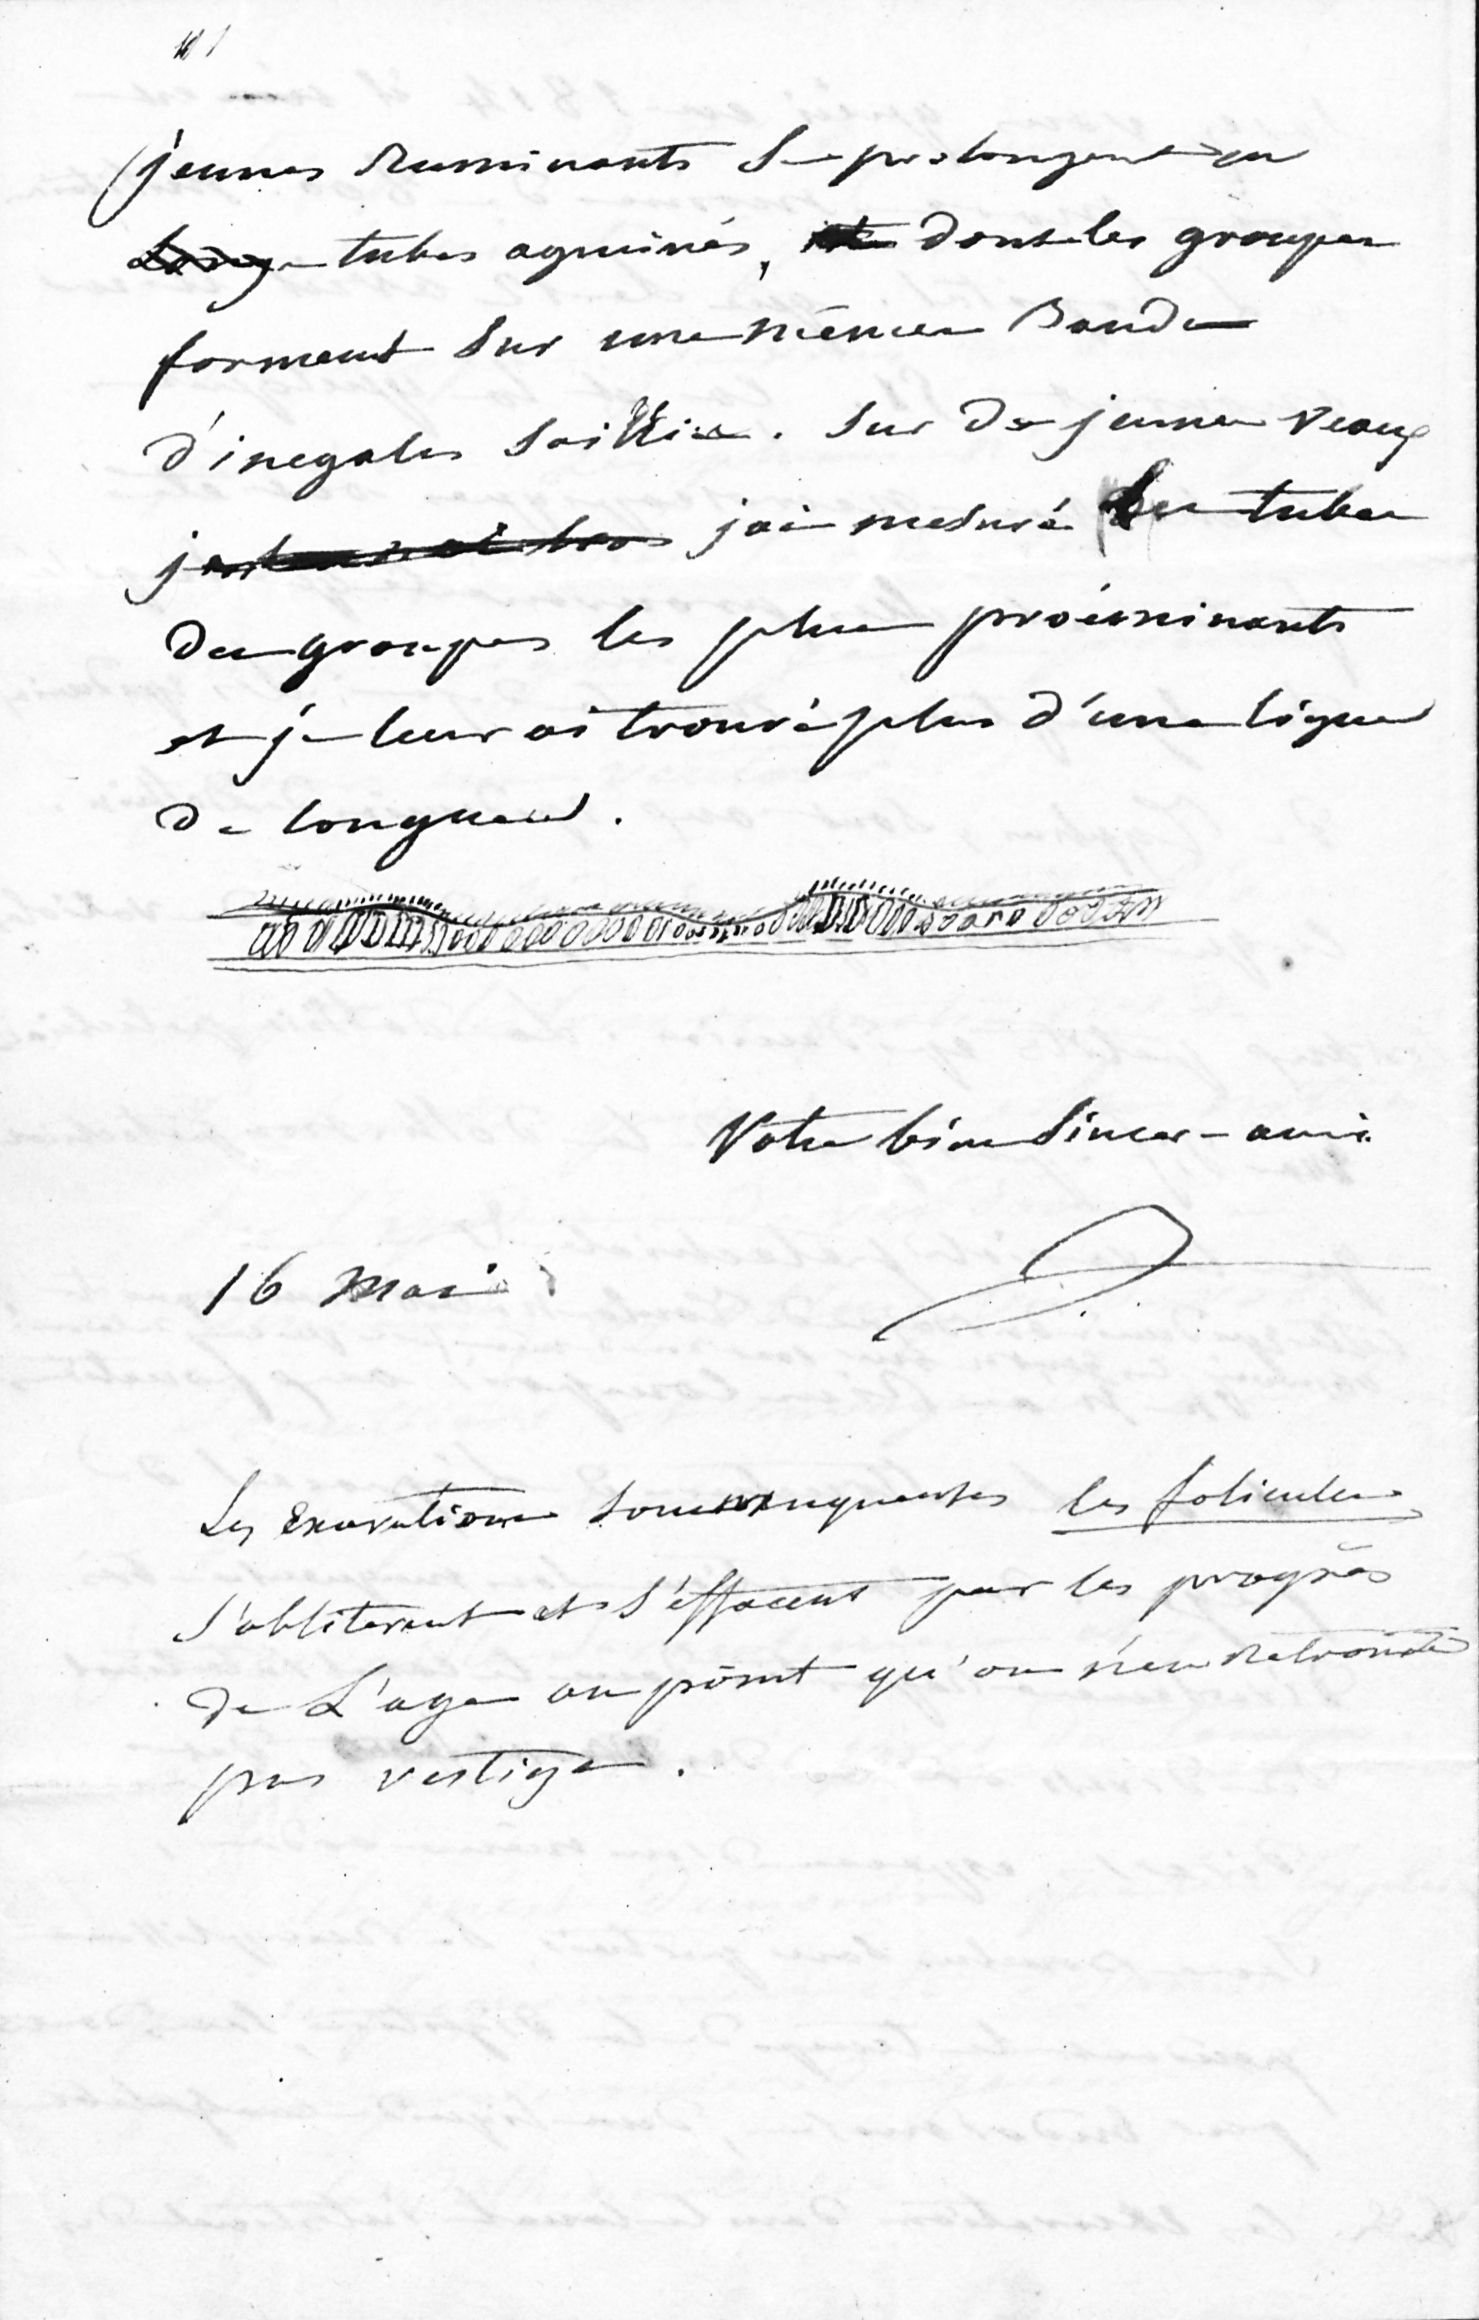 jeunes Ruminants se prolongent en
tubes agminés, dont les groupes
forment sur une même Bande
d'inegales saillies. sur de jeunes veaux
j'ai mesuré les tubes
des groupes les plus proéminants
et je leur ai trouvé plus d'une ligne
de longueur.
Votre bien sincere ami
16 Mai
Les Excavations sousmuqueuses les folicules
s'obliterent et s'effacent par les progrès
de L'age au point qu'on n'en Retrouve
pas vestige.